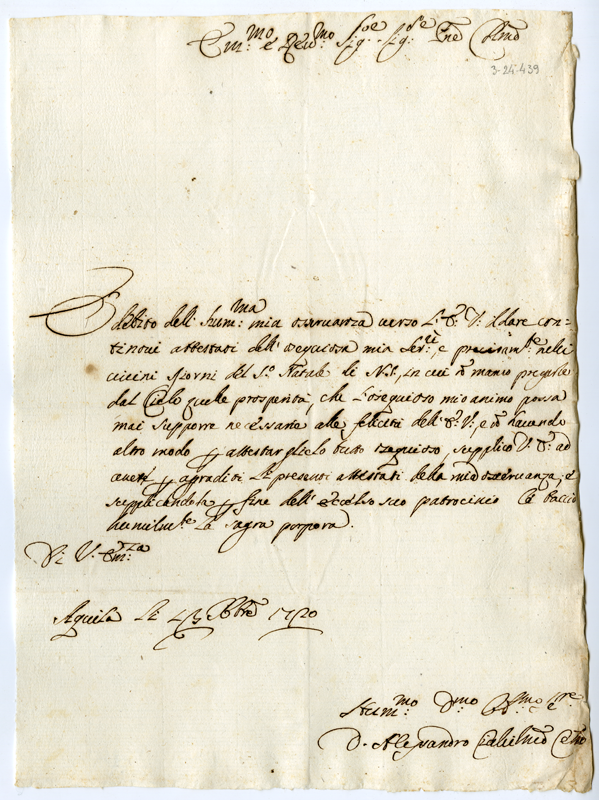 Em:mo e Reu:mo Sig:re Sig:re Pne Colmo
3-24-439
È debito dell' hum:ma mia osseruanza uerso l' E: V: il dare con=
tinoui attestati dell' ossequiosa mia Ser:tù e precisam:te nelli
uicini giorni del S:o Natale di N:S:, in cui nõ manco pregarle
dal Cielo quelle prosperità, che l'ossequioso mio animo possa
mai supporre necessarie alle felicità dell' E: V:, e nõ hauendo
altro modo p attestarglielo tutto ossequioso, supplico V: E: ad
auere p agraditi li presenti attestati della mia osseruanza; e
supplicandola p fine dell' eccelso suo patrocinio le baccio
humilm:te la sagra porpora.
Di V: Em:za
Aquila li Xbre 1720
Hum:mo D:mo Obl:mo
D. Alessandro